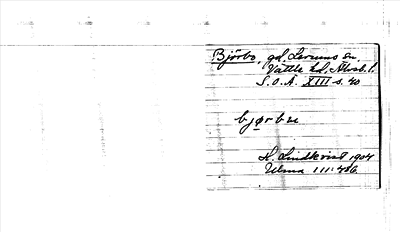 Björbo, gd, Lerums sn.
Vättle hd, Älvsb. l.
S.O.Ä. XIII s. 40
bjørbu
H. Lindkvist 1904
Uluna III: 486